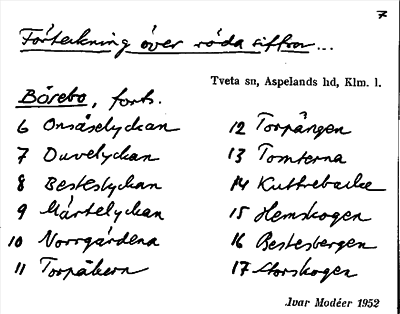 7
Förteckning över röda siffror...
Tveta sn, Aspelands hd, Klm. l.
Bårebo, forts.
6 Onsåselyckan
7 Duvelyckan
8 Besteslyckan
9 Mårtelyckan
10 Norrgårdena
11 Torpåkern
12 Torpängen
13 Tomterna
14 Kuttrebacke
15 Hemskogen
16 Bestesbergen
17 Storskogen
Ivar Modéer 1952